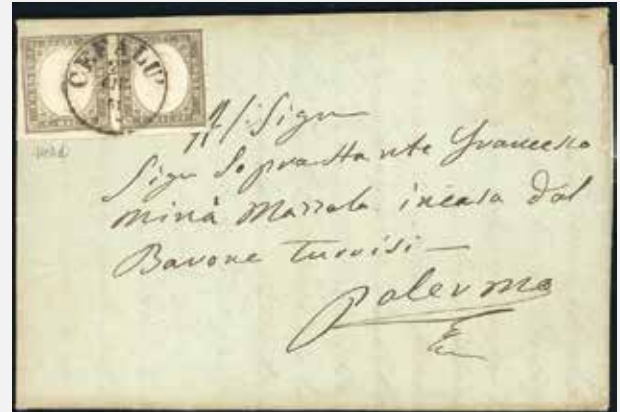 CEFALU'
All: Sigr
Sigr Soprastante Francesco
Minà Mazzola incasa dal
Barone Turrisi —
Palermo